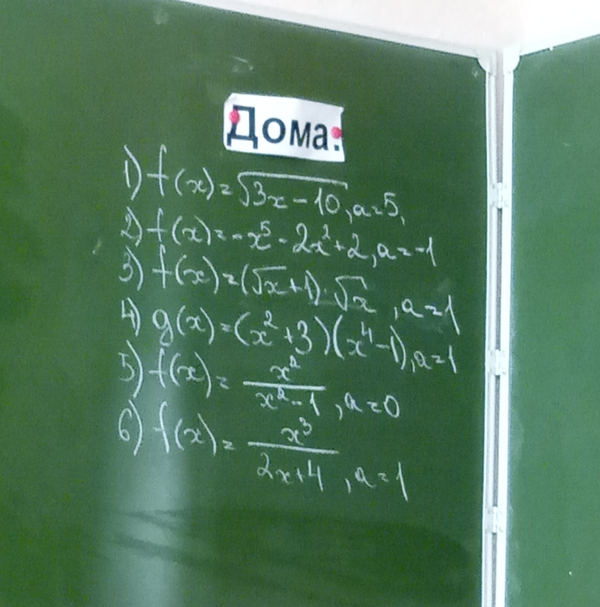 Дома:
1) f(x)=√3x-10, a=5,
2) f(x)=-x⁵-2x²+2, a=-1
3) f(x)=(√x+1)·√x, a=1
4) g(x)=(x²+3)(x⁴-1), a=1
5) f(x)= x²/x²-1, a=0
6) f(x)= x³/2x+4, a=1